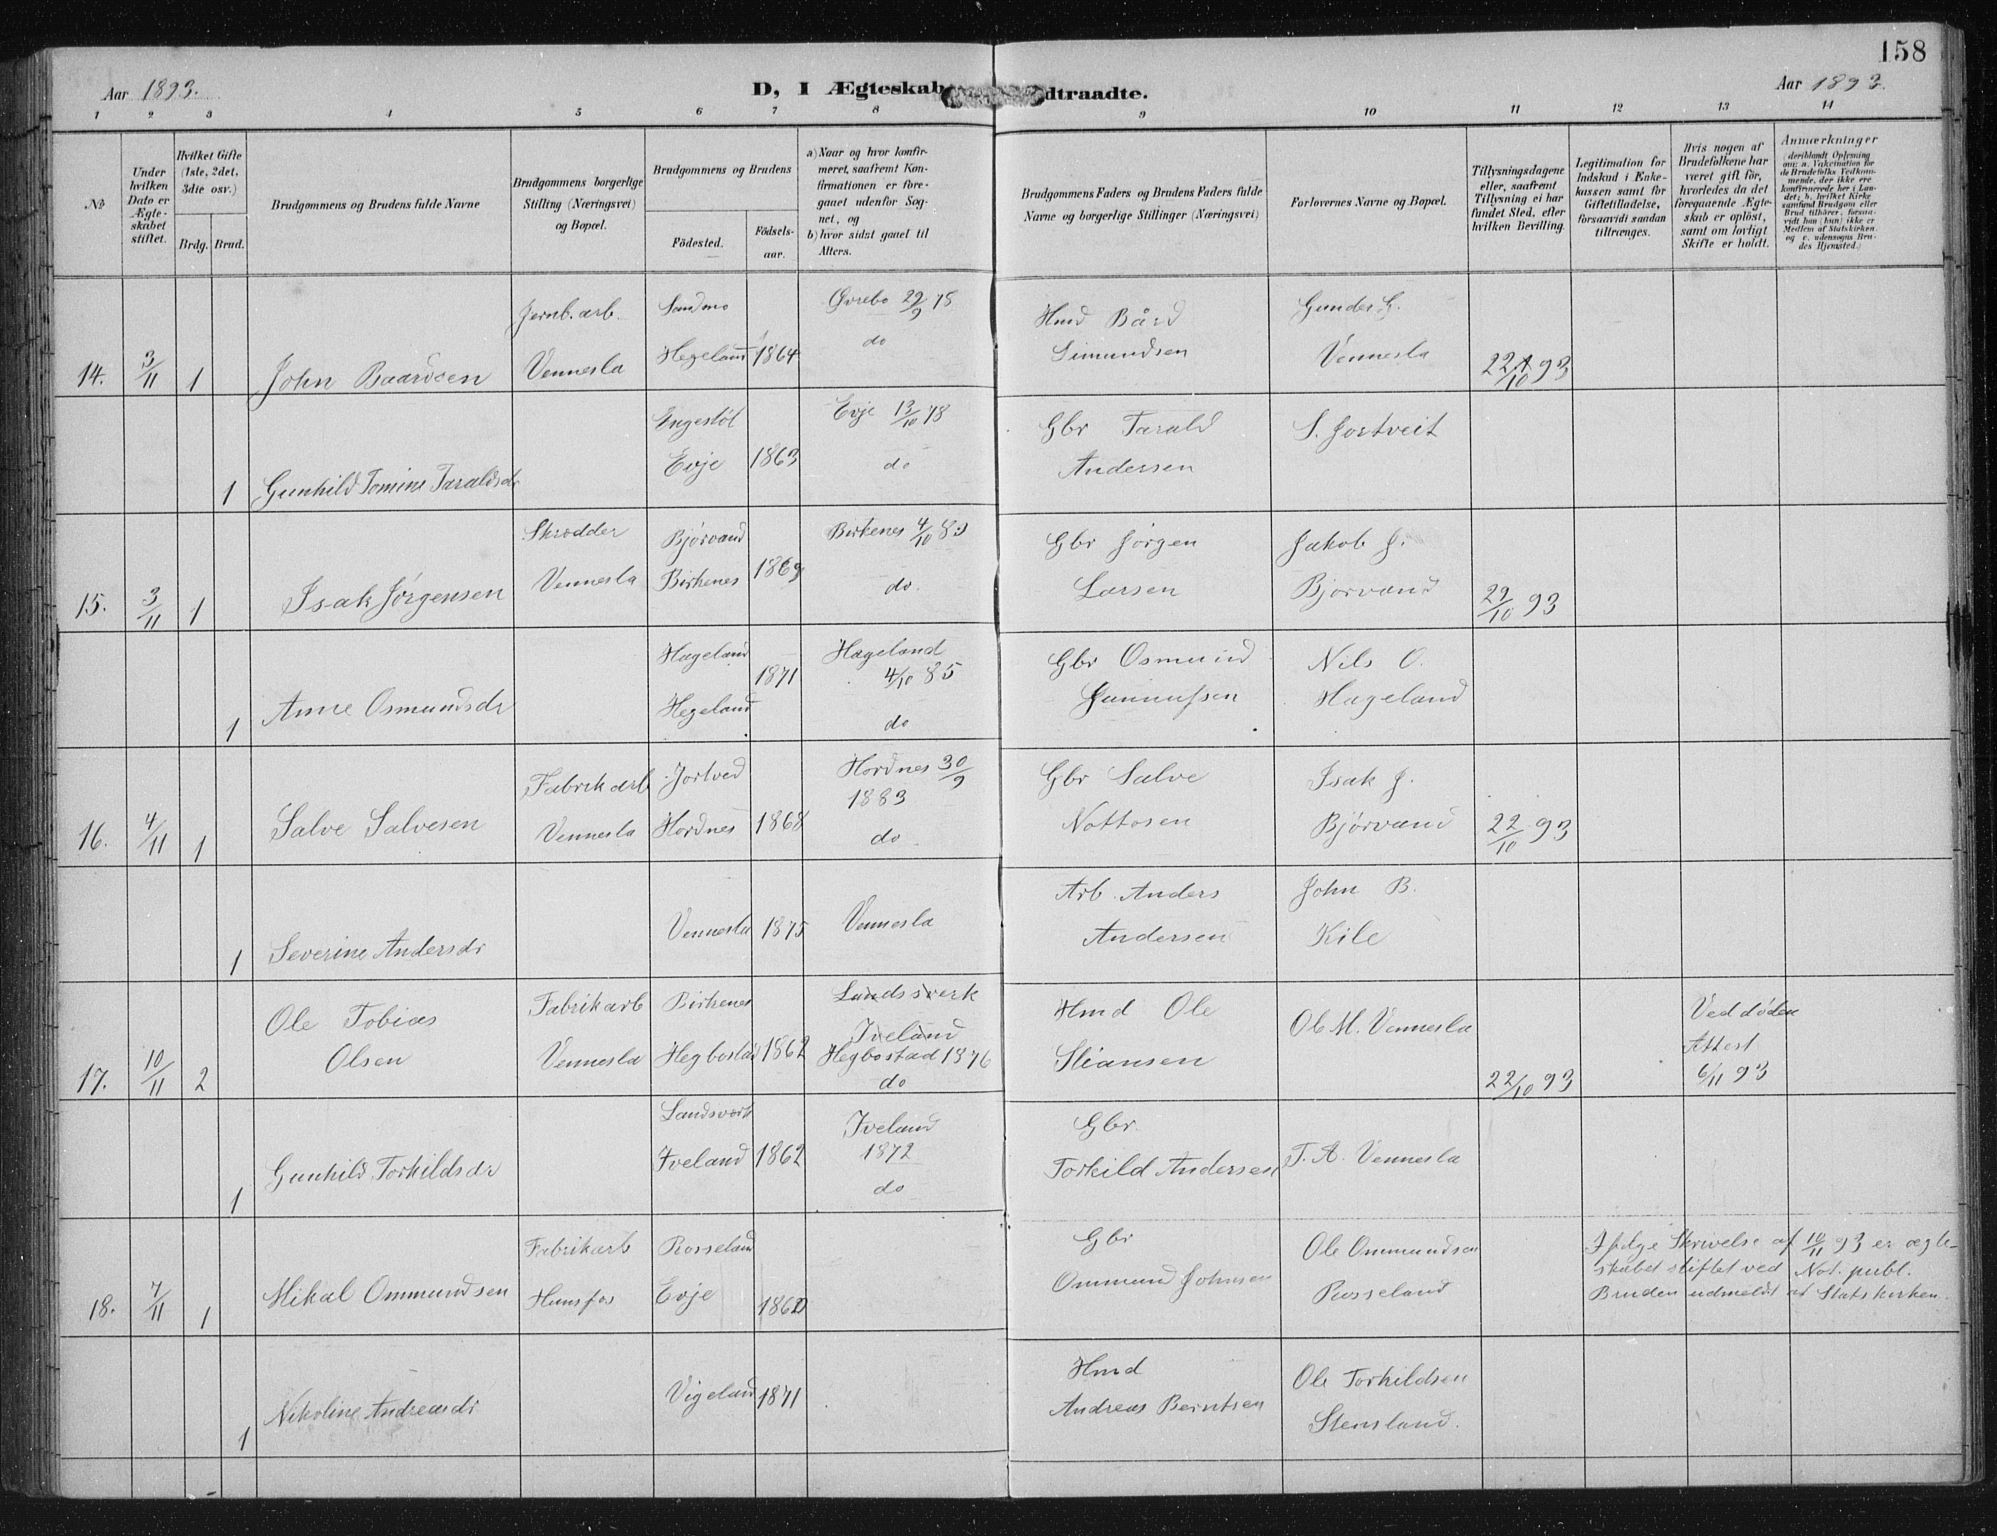 158
Aar 1893.
D, I Ægteskab
dtraadte.
Aar 1893.
1 2 3 4 5 6 7 8 9 10 11 12 13 14
No
Under hvilken Dato er Ægteskabet stiftet.
Hvilket Gifte (1ste, 2det, 3die osv.)
Brdg. Brud.
Brudgommens og Brudens fulde Navne
Brudgommens borgerlige Stilling (Næringsvei) og Bopæl.
Brudgommens og Brudens
Fødested.
Fødselsaar.
a) Naar og hvor konfirmeret, saafremt Konfirmationen er foregaaet udenfor Sognet, og
b) hvor sidst gaaet til Alters.
Brudgommens Faders og Brudens Faders fulde Navne og borgerlige Stillinger (Næringsvei)
Forlovernes Navne og Bopæl.
Tillysningsdagene eller, saafremt Tillysning ei har fundet Sted, efter hvilken Bevilling.
Legitimation for Indskud i Enkekassen samt for Giftetilladelse, forsaavidt saadan tiltrænges.
Hvis nogen af Brudefolkene har været gift før, hvorledes da det foregaaende Ægteskab er opløst, samt om lovligt Skifte er holdt.
Anmærkninger
(deriblandt Oplysning om: a. Vakcination for de Brudefolks Vedkommende, der ikke ere konfirmerede her i Landet; b. hvilket Kirkesamfund Brudgom eller Brud tilhører, forsaavidt han (hun) ikke er Medlem af Statskirken og c. udensogns Brudes Hjemsted.)
14. 3/11 1 John Baardsen
Jernb. arb. Vennesla
Sandmo Hegeland 1864
Øvrebo 29/9 78
do
Hmd Bård Simundsen
Gunder G. Vennesla
22/10 93
1 Gunhild Tomine Taraldsdr
Engestøl Evje 1863
Evje 13/10 78
do
Gbr Tarald Andersen
S. Jortveit
15. 3/11 1 Isak Jørgensen
Skrædder Vennesla
Bjørvand Birkenes 1869
Birkenes 4/10 83
do.
Gbr Jørgen Larsen
Jakob J. Bjorvand
29/10 93
1 Anne Osmundsdr
Hægeland Hegeland 1871
Hageland 4/10 85
do
Gbr Osmund Gunnufsen
Nils O. Hægeland
16. 4/11 1 Salve Salvesen
Fabrikarb Vennesla
Jortved Hordnes 1868
Hordnes 30/9 1883
do
Gbr Salve Nottosen
Isak J. Bjørvand
22/10 93
1 Severine Andersdr
Vennesla 1875
Vennesla
Arb. Anders Andersen
John B. Kile
17. 10/11 2 Ole Tobias Olsen
Fabrikarb Vennesla
Birkenes Hegbostad 1862
Landsverk Iveland
Hegbostad 1876
do
Hmd Ole Stiansen
Ole M. Vennesla
22/10 93
Ved døden
Attest
6/11 93
1 Gunhild Torkildsdr
Landsverk Iveland 1862
Iveland 1872
do
Gbr. Torkild Andersen
T. A. Vennesla
18. 7/11 1 Mikal Ommundsen
Fabrikarb Hunsfos
Rosseland Evje 1860
Gbr Ommund Johnsen
Ole Ommundsen Rosseland
Ifølge Skrivelse af 10/11 93 er ægte-
skabet stiftet ved Not. publ.
Bruden udmeldt af Statskirken.
1 Nikoline Andreasdr
Vigeland 1871
Hmd Andreas Berntsen
Ole Torkildsen Stensland.